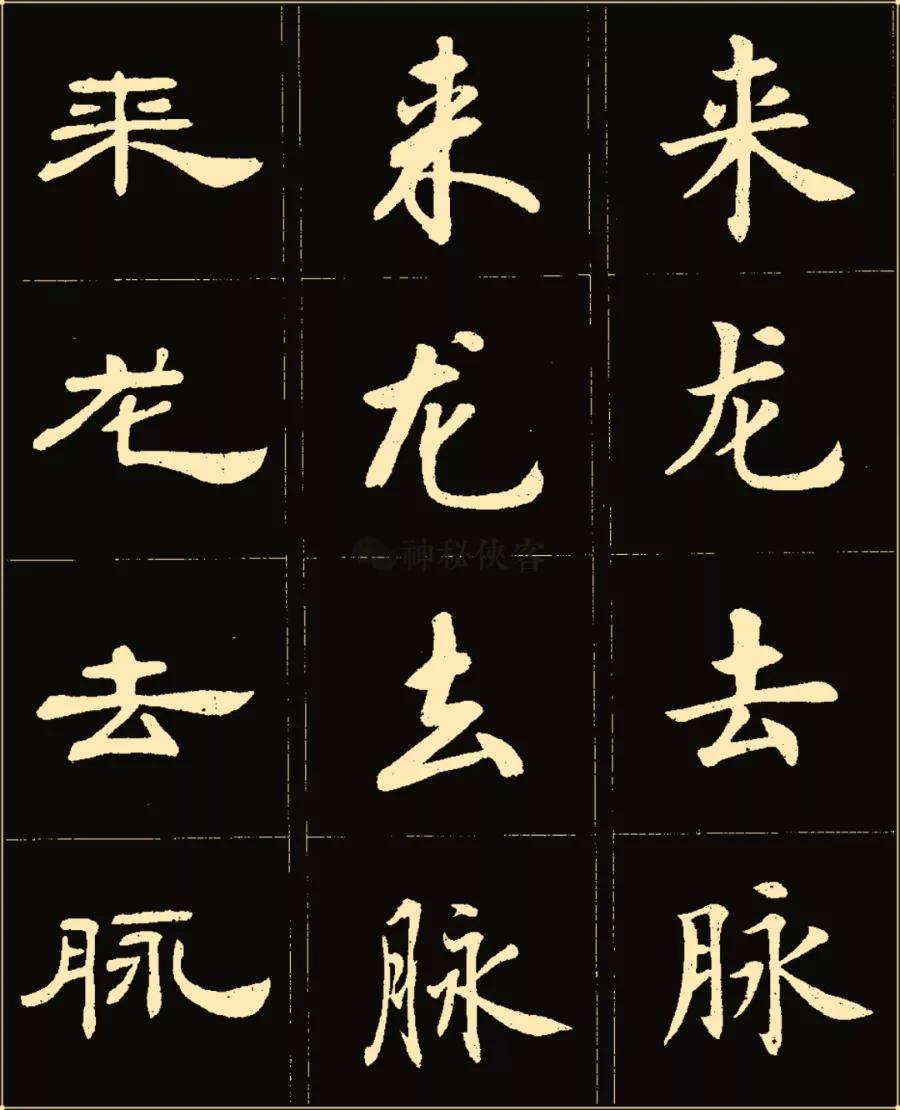 来 来 来
龙 龙 龙
去 去 去
神秘侠客
脉 脉 脉